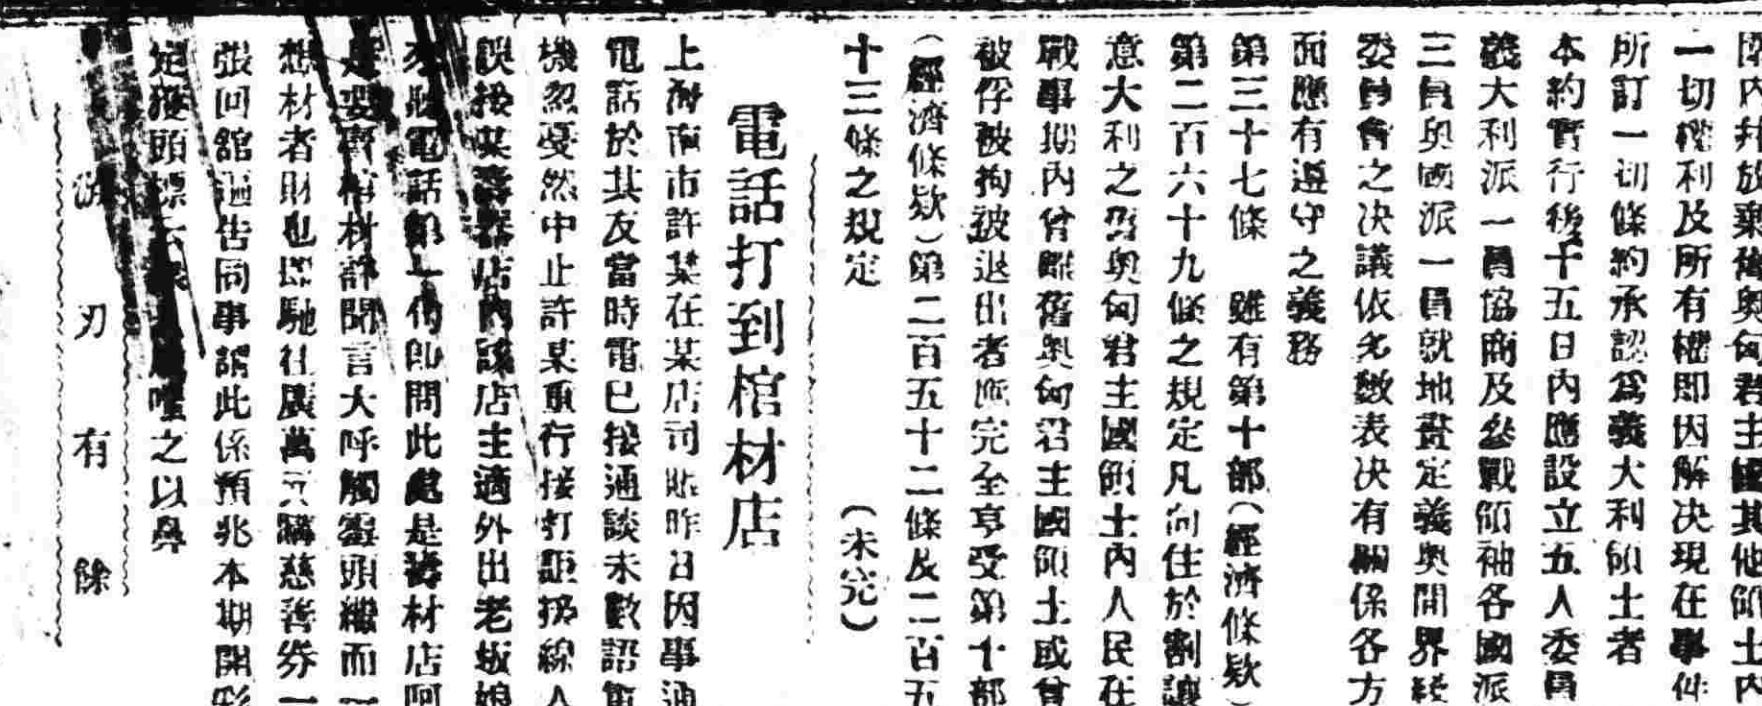 國內并放棄舊奧匈君主國其他領土內
一切權利及所有權即因解決現在事件
所訂一切條約承認爲義大利領土者
本約實行後十五日內應設立五人委員
義大利派一員協商及參戰領袖各國派
三員奧國派一員就地畫定義奧間界綫
委員會之决議依多數表决有關係各方
面應有遵守之義務
第三十七條　雖有第十部（經濟條欵）
第二百六十九條之規定凡向住於割讓
意大利之舊奧匈君主國領土內人民在
戰事期內曾離舊奧匈君主國領土或曾
被俘被拘被退出者應完全享受第十部
（經濟條欵）第二百五十二條及二百五
十三條之規定　（未完）
電話打到棺材店
上海南市許某在某店司賬昨日因事通
電話於其友當時電已接通談未數語電
機忽戛然中止許某重行接打詎扔線人
誤接某壽器店內該店主適外出老板娘
來聽電話第一句即問此處是壽材店阿
是要賣棺材許聞言大呼觸霉頭繼而一
想材者財也即馳往廣萬元購慈善券一
張回舘遍告同事謂此係預兆本期開彩
定獲頭標 嗤之以鼻
游刃有餘